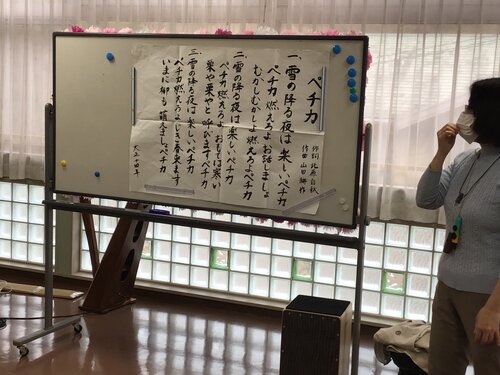 ペチカ
作詞 北原白秋
作曲 山田耕作
一、雪の降る夜は 楽しいペチカ
ペチカ燃えろよ お話しましょ
むかしむかしよ 燃えろよペチカ
二、雪の降る夜は 楽しいペチカ
ペチカ燃えろよ おもては寒い
栗や栗やと 呼びますペチカ
三、雪の降る夜は 楽しいペチカ
ペチカ燃えろよ じき春来ます
いまに柳も 萌えましょペチカ